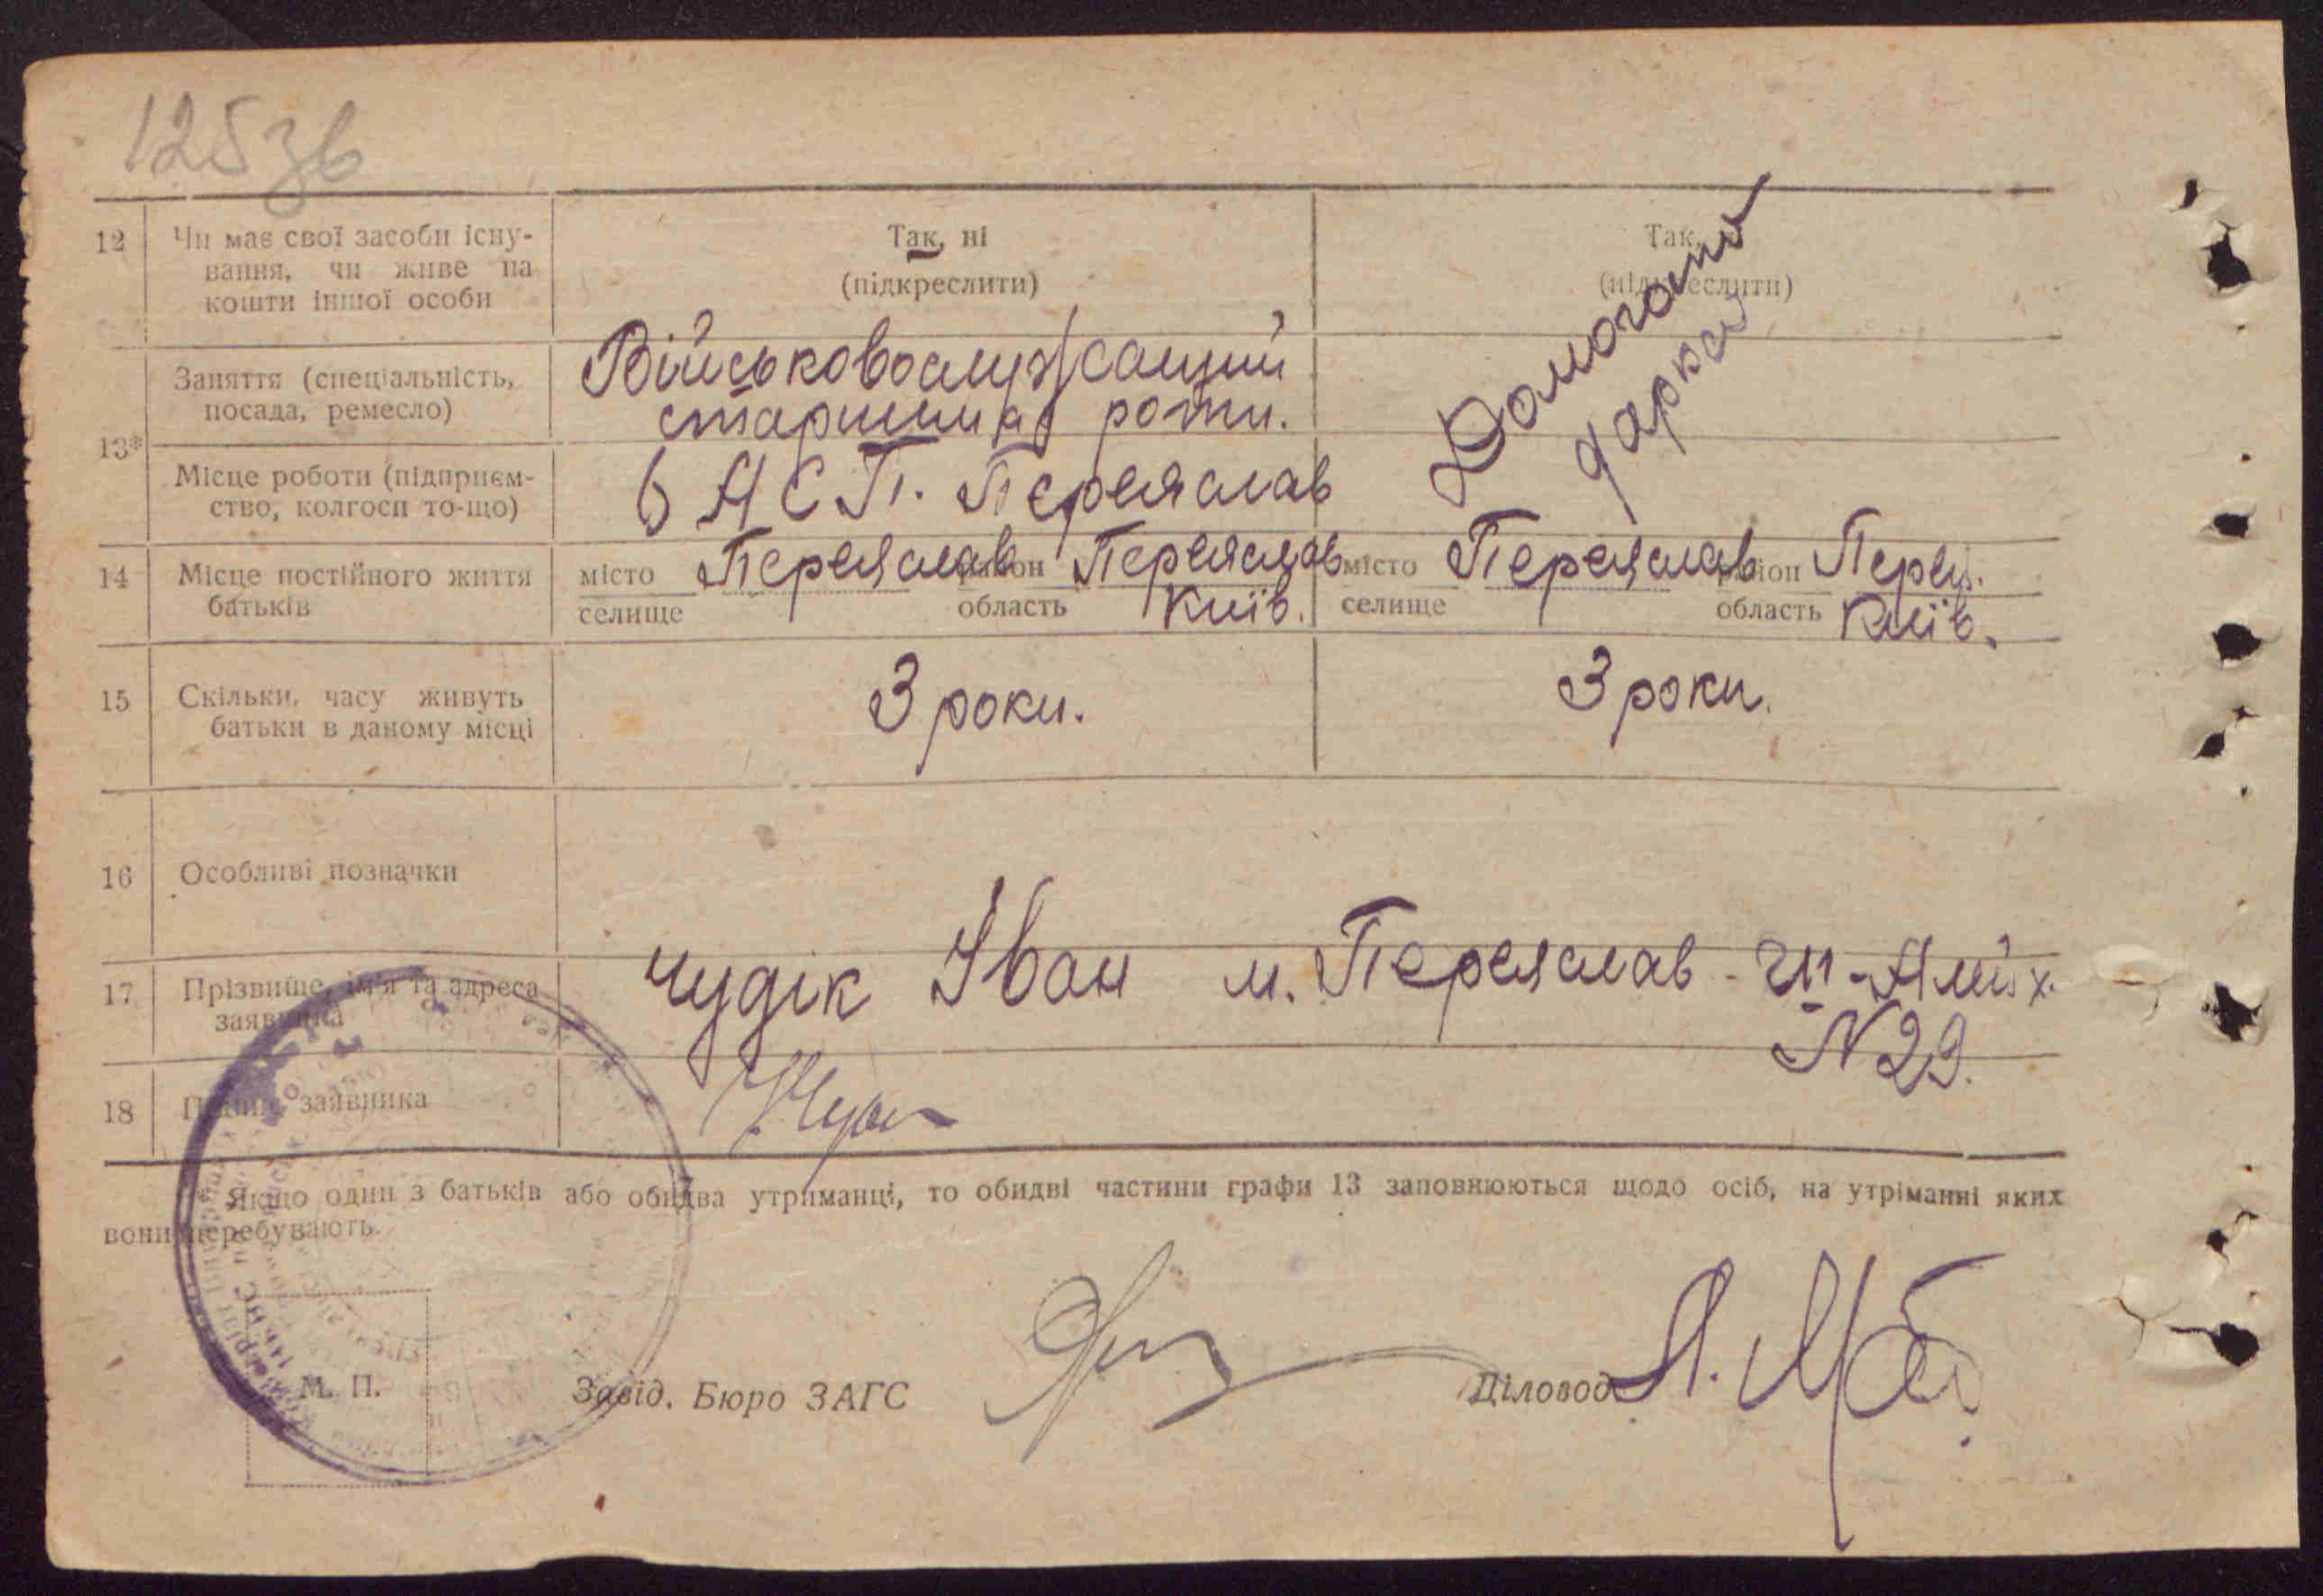 125 зв
12 Чи має свої засоби існу-
вання, чи живе на
кошти іншої особи
Так, ні
(підкреслити)
Так,
(підкреслити)
13*
Заняття (спеціальність,
посада, ремесло)
Військовослужбащий
старшина роти.
Домогоспо
дарка
Місце роботи (підприєм-
ство, колгосп то-що)
Переяслав
14 Місце постійного життя
батьків
місто Переяслав район Переяслав
селище область Київ.
місто Переяслав район Переяс.
селище область Київ.
15 Скільки, часу живуть
батьки в даному місці
3 роки.
3 роки.
16 Особливі позначки
17 Прізвище, ім'я та адреса
заявника
Чудік Іван м. Переяслав
N 29.
18 Підпис заявника
* Якщо один з батьків або обидва утриманці, то обидві частини графи 13 заповнюються щодо осіб, на утріманні яких
вони перебувають.
М. П.
Завід. Бюро ЗАГС
Діловод